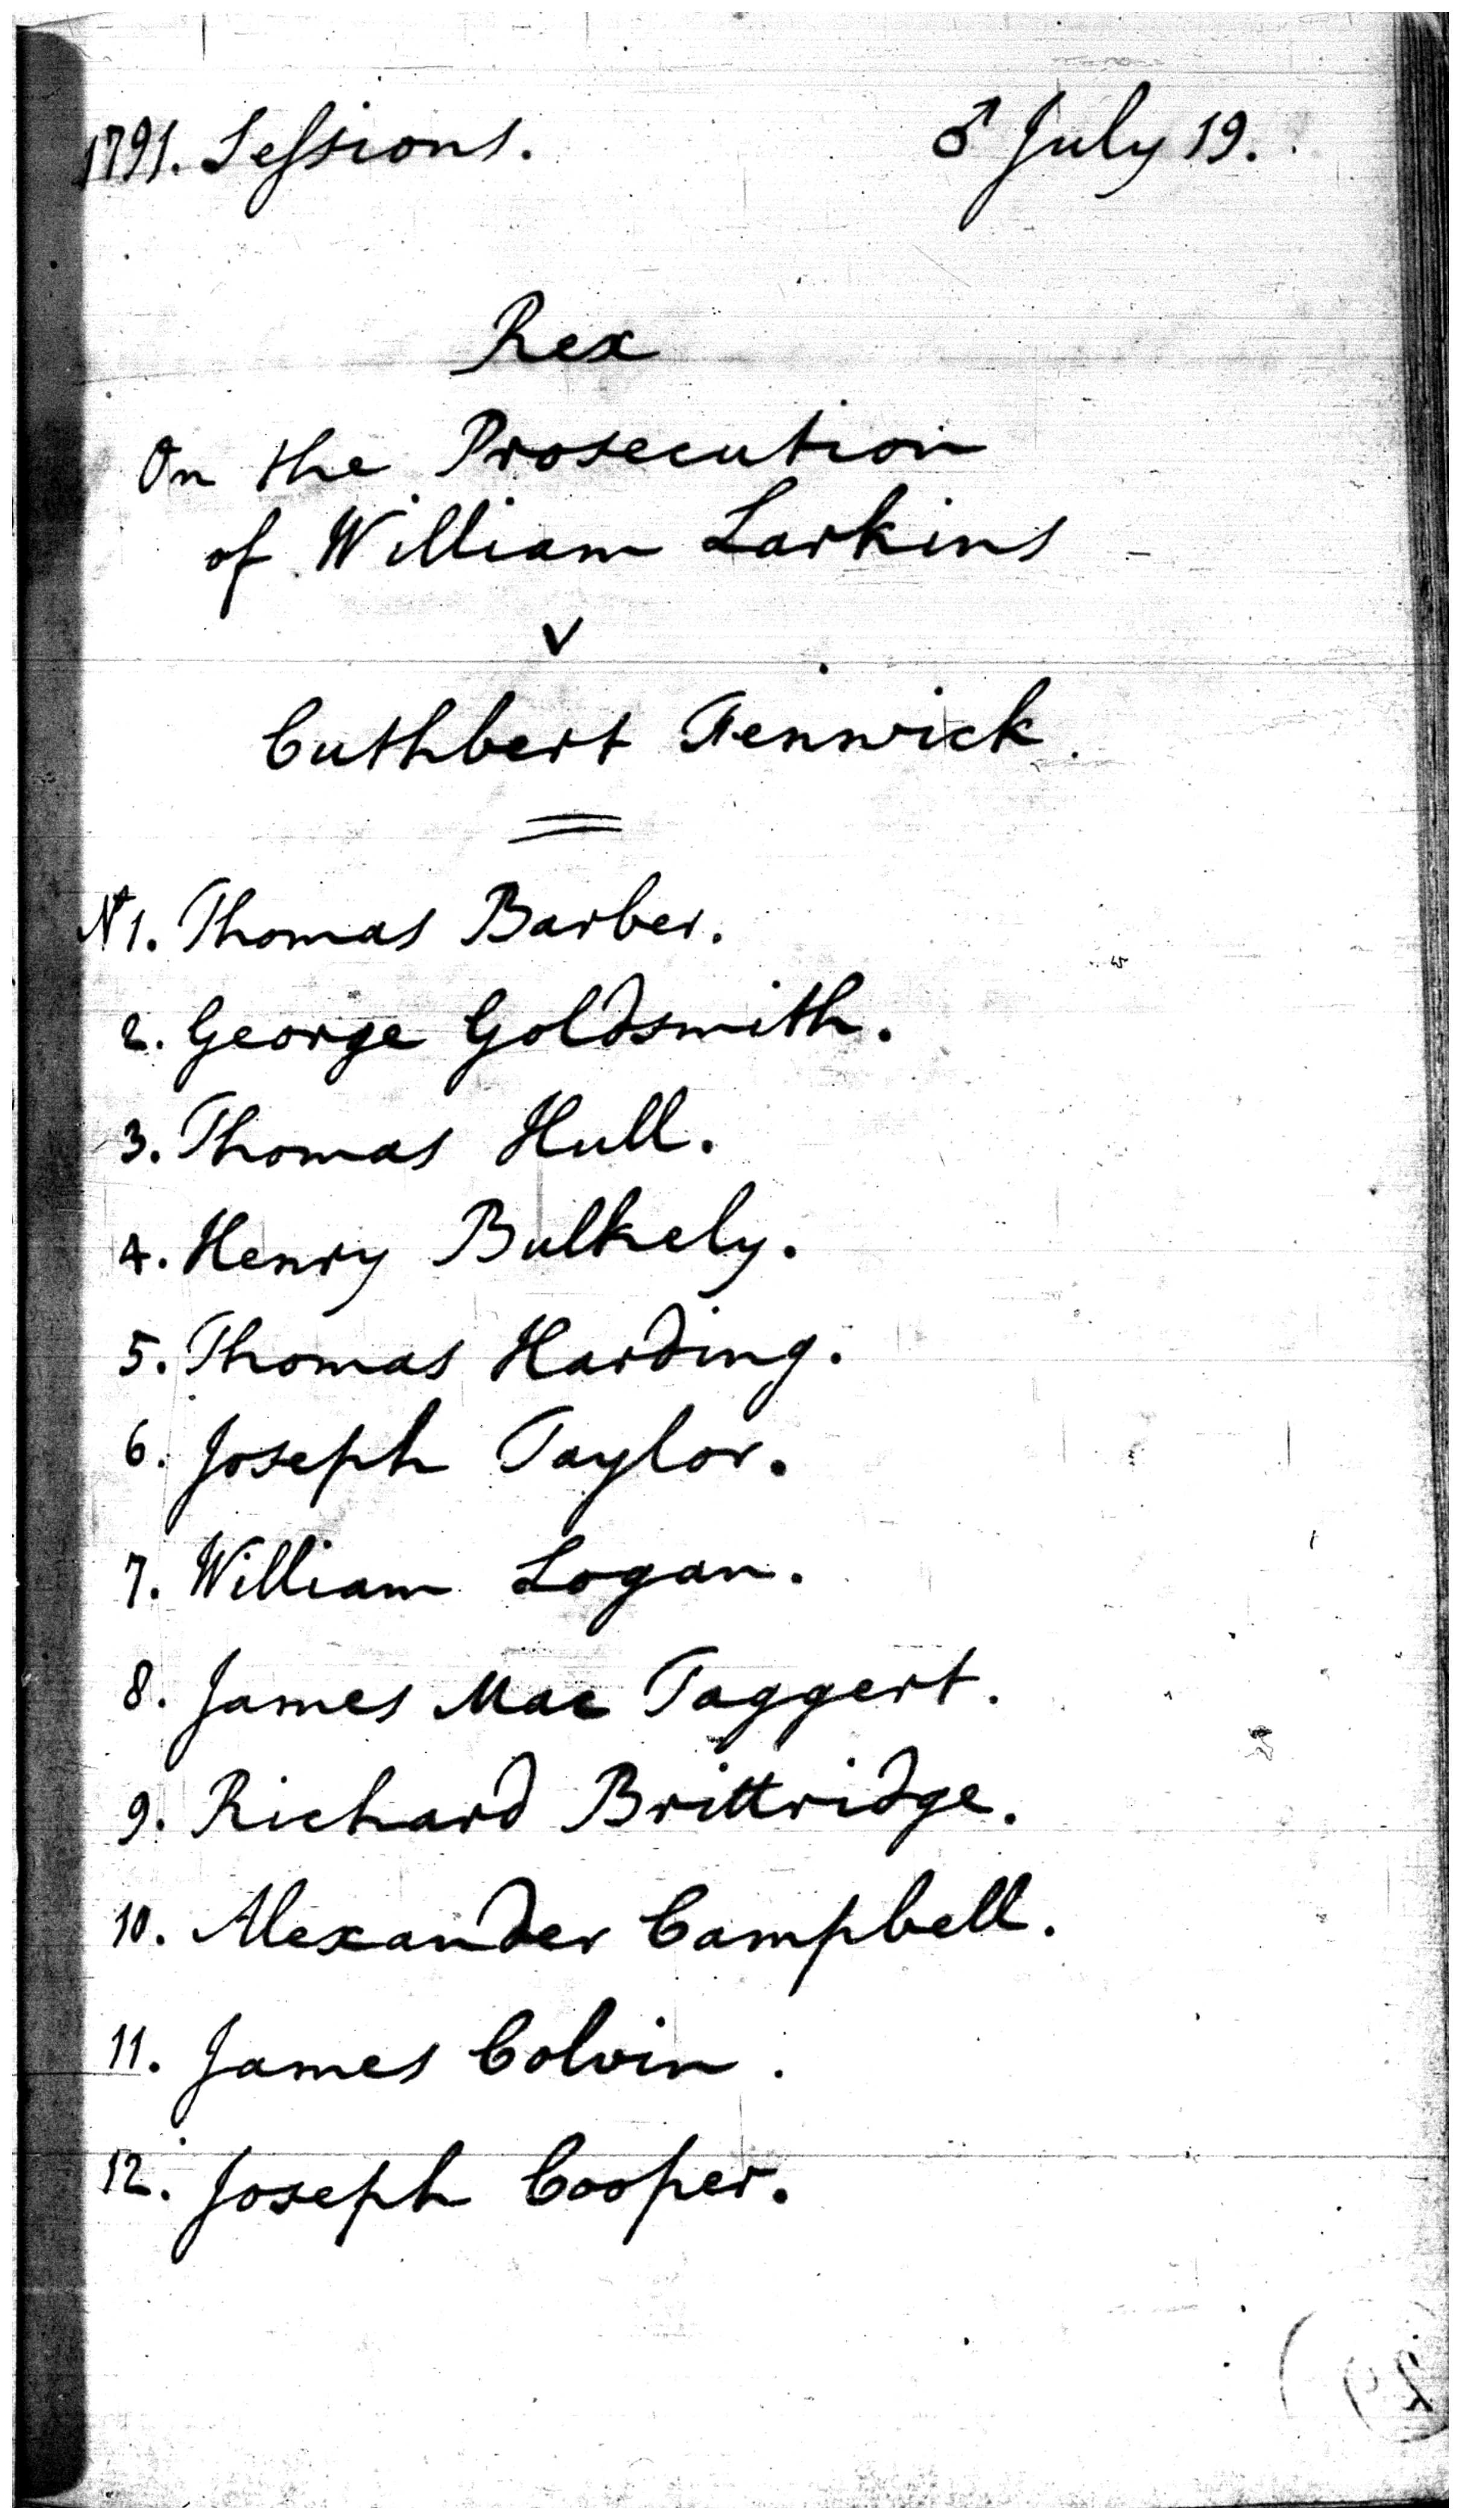 1791. Sessions. ♂ July 19.
Rex
On the Prosecution
of William Larkins
v
Cuthbert Fenwick.
No 1. Thomas Barber.
2. George Goldsmith.
3. Thomas Hull.
4. Henry Bulkely.
5. Thomas Harding.
6. Joseph Taylor.
7. William Logan.
8. James Mac Taggert.
9. Richard Brittridge.
10. Alexander Campbell.
11. James Colvin.
12. Joseph Cooper.